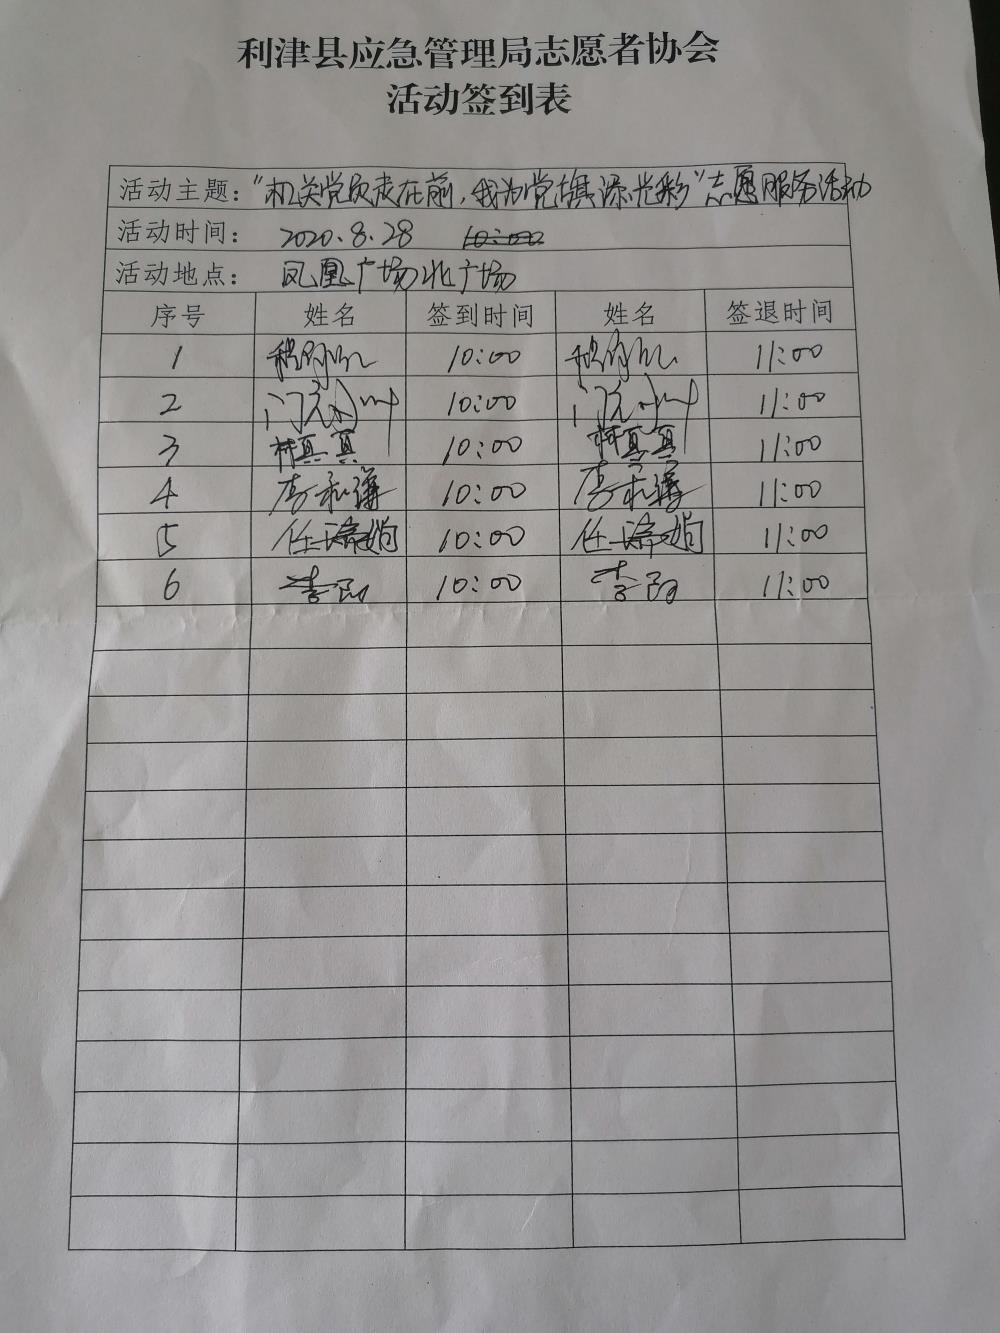 利津县应急管理局志愿者协会
活动签到表
活动主题：“机关党员走在前，我为党旗添光彩”志愿服务活动
活动时间： 2020.8.28 10:00
活动地点： 凤凰广场北广场
序号 姓名 签到时间 姓名 签退时间
1 10:00 11:00
2 10:00 11:00
3 林真真 10:00 林真真 11:00
4 10:00 11:00
5 10:00 11:00
6 李阳 10:00 李阳 11:00